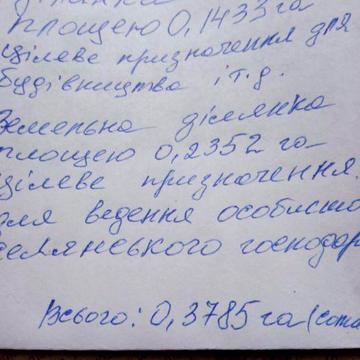 ділянка
площею 0,1433 га
цілеве призначення для
будівництва і т.д.
Земельна ділянка
площею 0,2352 га
цілеве призначення.
для ведення особисто
селянського господар
Всього: 0,3785 га (сота